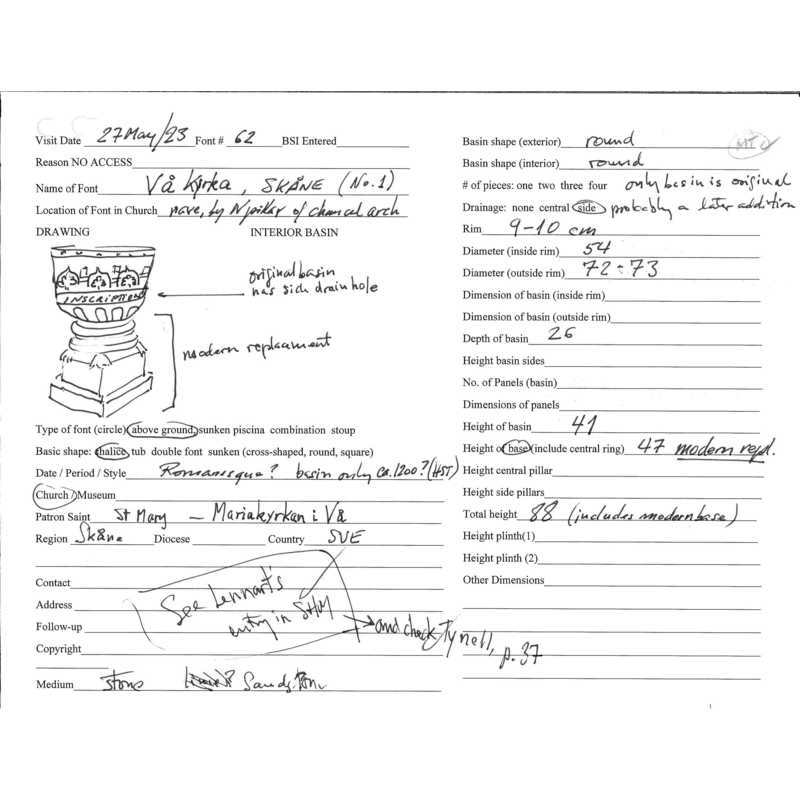 Visit Date 27 May/23 Font # 62 BSI Entered
Reason NO ACCESS
Name of Font Vå Kyrka, SKÅNE (No.1)
Location of Font in Church nave, by N pillar of chancel arch
DRAWING INTERIOR BASIN
original basin
has side drain hole
INSCRIPTION
modern replacement
Type of font (circle) above ground sunken piscina combination stoup
Basic shape: chalice tub double font sunken (cross-shaped, round, square)
Date / Period / Style Romanesque? basin only ca. 1200? (HST)
Church / Museum
Patron Saint St Mary – Mariakyrkan i Vå
Region Skåne Diocese Country SUE
Contact
Address
Follow-up
Copyright
See Lennart's
entry in SHM
and check Tynell,
p. 37
Medium stone Sandstone
Basin shape (exterior) round
Basin shape (interior) round
# of pieces: one two three four only basin is original
Drainage: none central side probably a later addition
Rim 9-10 cm
Diameter (inside rim) 54
Diameter (outside rim) 72-73
Dimension of basin (inside rim)
Dimension of basin (outside rim)
Depth of basin 26
Height basin sides
No. of Panels (basin)
Dimensions of panels
Height of basin 41
Height of base (include central ring) 47 modern repl.
Height central pillar
Height side pillars
Total height 88 (includes modern base)
Height plinth(1)
Height plinth (2)
Other Dimensions